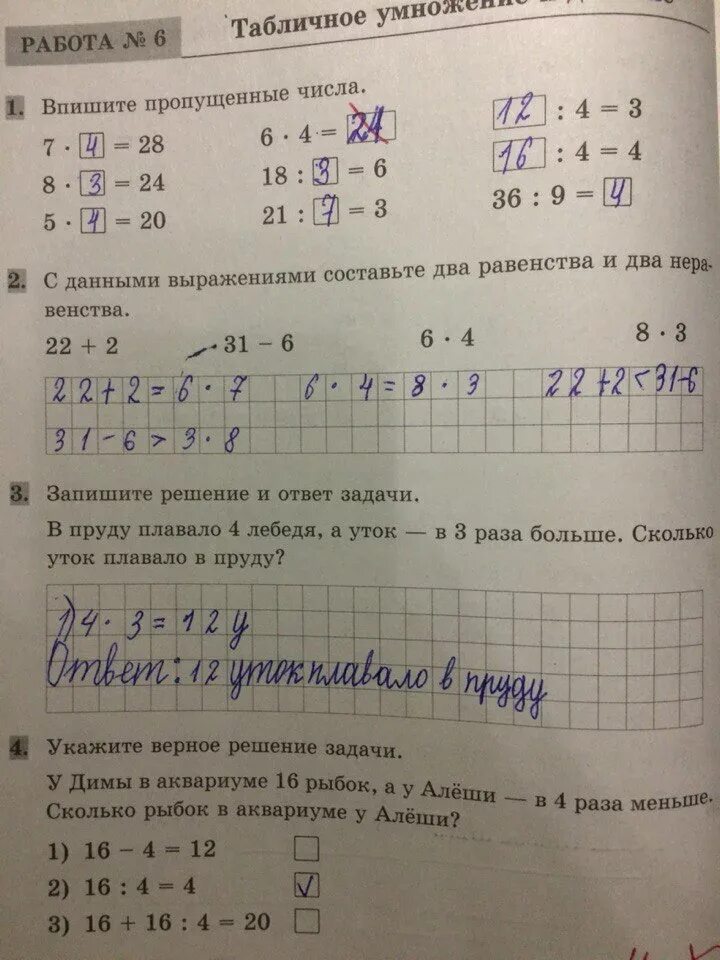 РАБОТА № 6
Табличное умножение
1. Впишите пропущенные числа.
7 · 4 = 28
6 · 4 = 24
12 : 4 = 3
8 · 3 = 24
18 : 3 = 6
16 : 4 = 4
5 · 4 = 20
21 : 7 = 3
36 : 9 = 4
2. С данными выражениями составьте два равенства и два нера-
венства.
22 + 2 31 – 6 6 · 4 8 · 3
22+2=6·7 6·4=8·3 22+2<31-6
31-6>3·8
3. Запишите решение и ответ задачи.
В пруду плавало 4 лебедя, а уток — в 3 раза больше. Сколько
уток плавало в пруду?
1) 4·3=12 у
Ответ: 12 уток плавало в пруду
4. Укажите верное решение задачи.
У Димы в аквариуме 16 рыбок, а у Алёши — в 4 раза меньше.
Сколько рыбок в аквариуме у Алёши?
1) 16 – 4 = 12
2) 16 : 4 = 4 ✓
3) 16 + 16 : 4 = 20